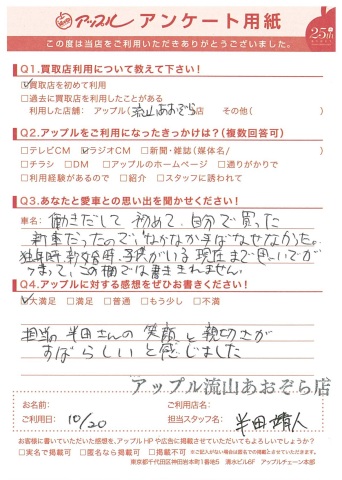 アップル アンケート用紙
25th
この度は当店をご利用いただきありがとうございました。
Q1.買取店利用について教えて下さい！
☑買取店を初めて利用
□過去に買取店を利用したことがある
利用した店舗： アップル（流山あおぞら店 その他（ ）
Q2.アップルをご利用になったきっかけは？（複数回答可）
□テレビCM ☑ラジオCM □新聞・雑誌（媒体名/ ）
□チラシ □DM □アップルのホームページ □通りがかりで
□利用経験があるので □紹介 □スタッフに誘われて
Q3.あなたと愛車との思い出を聞かせください！
車名： 働きだして 初めて、自分で買った
新車だったので、なかなか手ばなせなかった。
独身時、新婚時、子供がいる 現在まで思いでが
つまって、この欄では書ききれません。
Q4.アップルに対する感想をぜひお書きください！
☑大満足 □満足 □普通 □もう少し □不満
担当の 半田さんの 笑顔 と 親切さが
すばらしい と 感じました
アップル流山あおぞら店
お名前： ご利用店名：
ご利用日： 10/20 担当スタッフ名： 半田 靖人
お客様に書いていただいた感想を、アップルHPや広告に掲載させていただいてもよろしいでしょうか？
□実名で掲載可 □匿名なら掲載可 □掲載不可 ※ご記入がない場合は匿名での掲載とさせていただきます。
東京都千代田区神田岩本町1番地5 清水ビル6F アップルチェーン本部